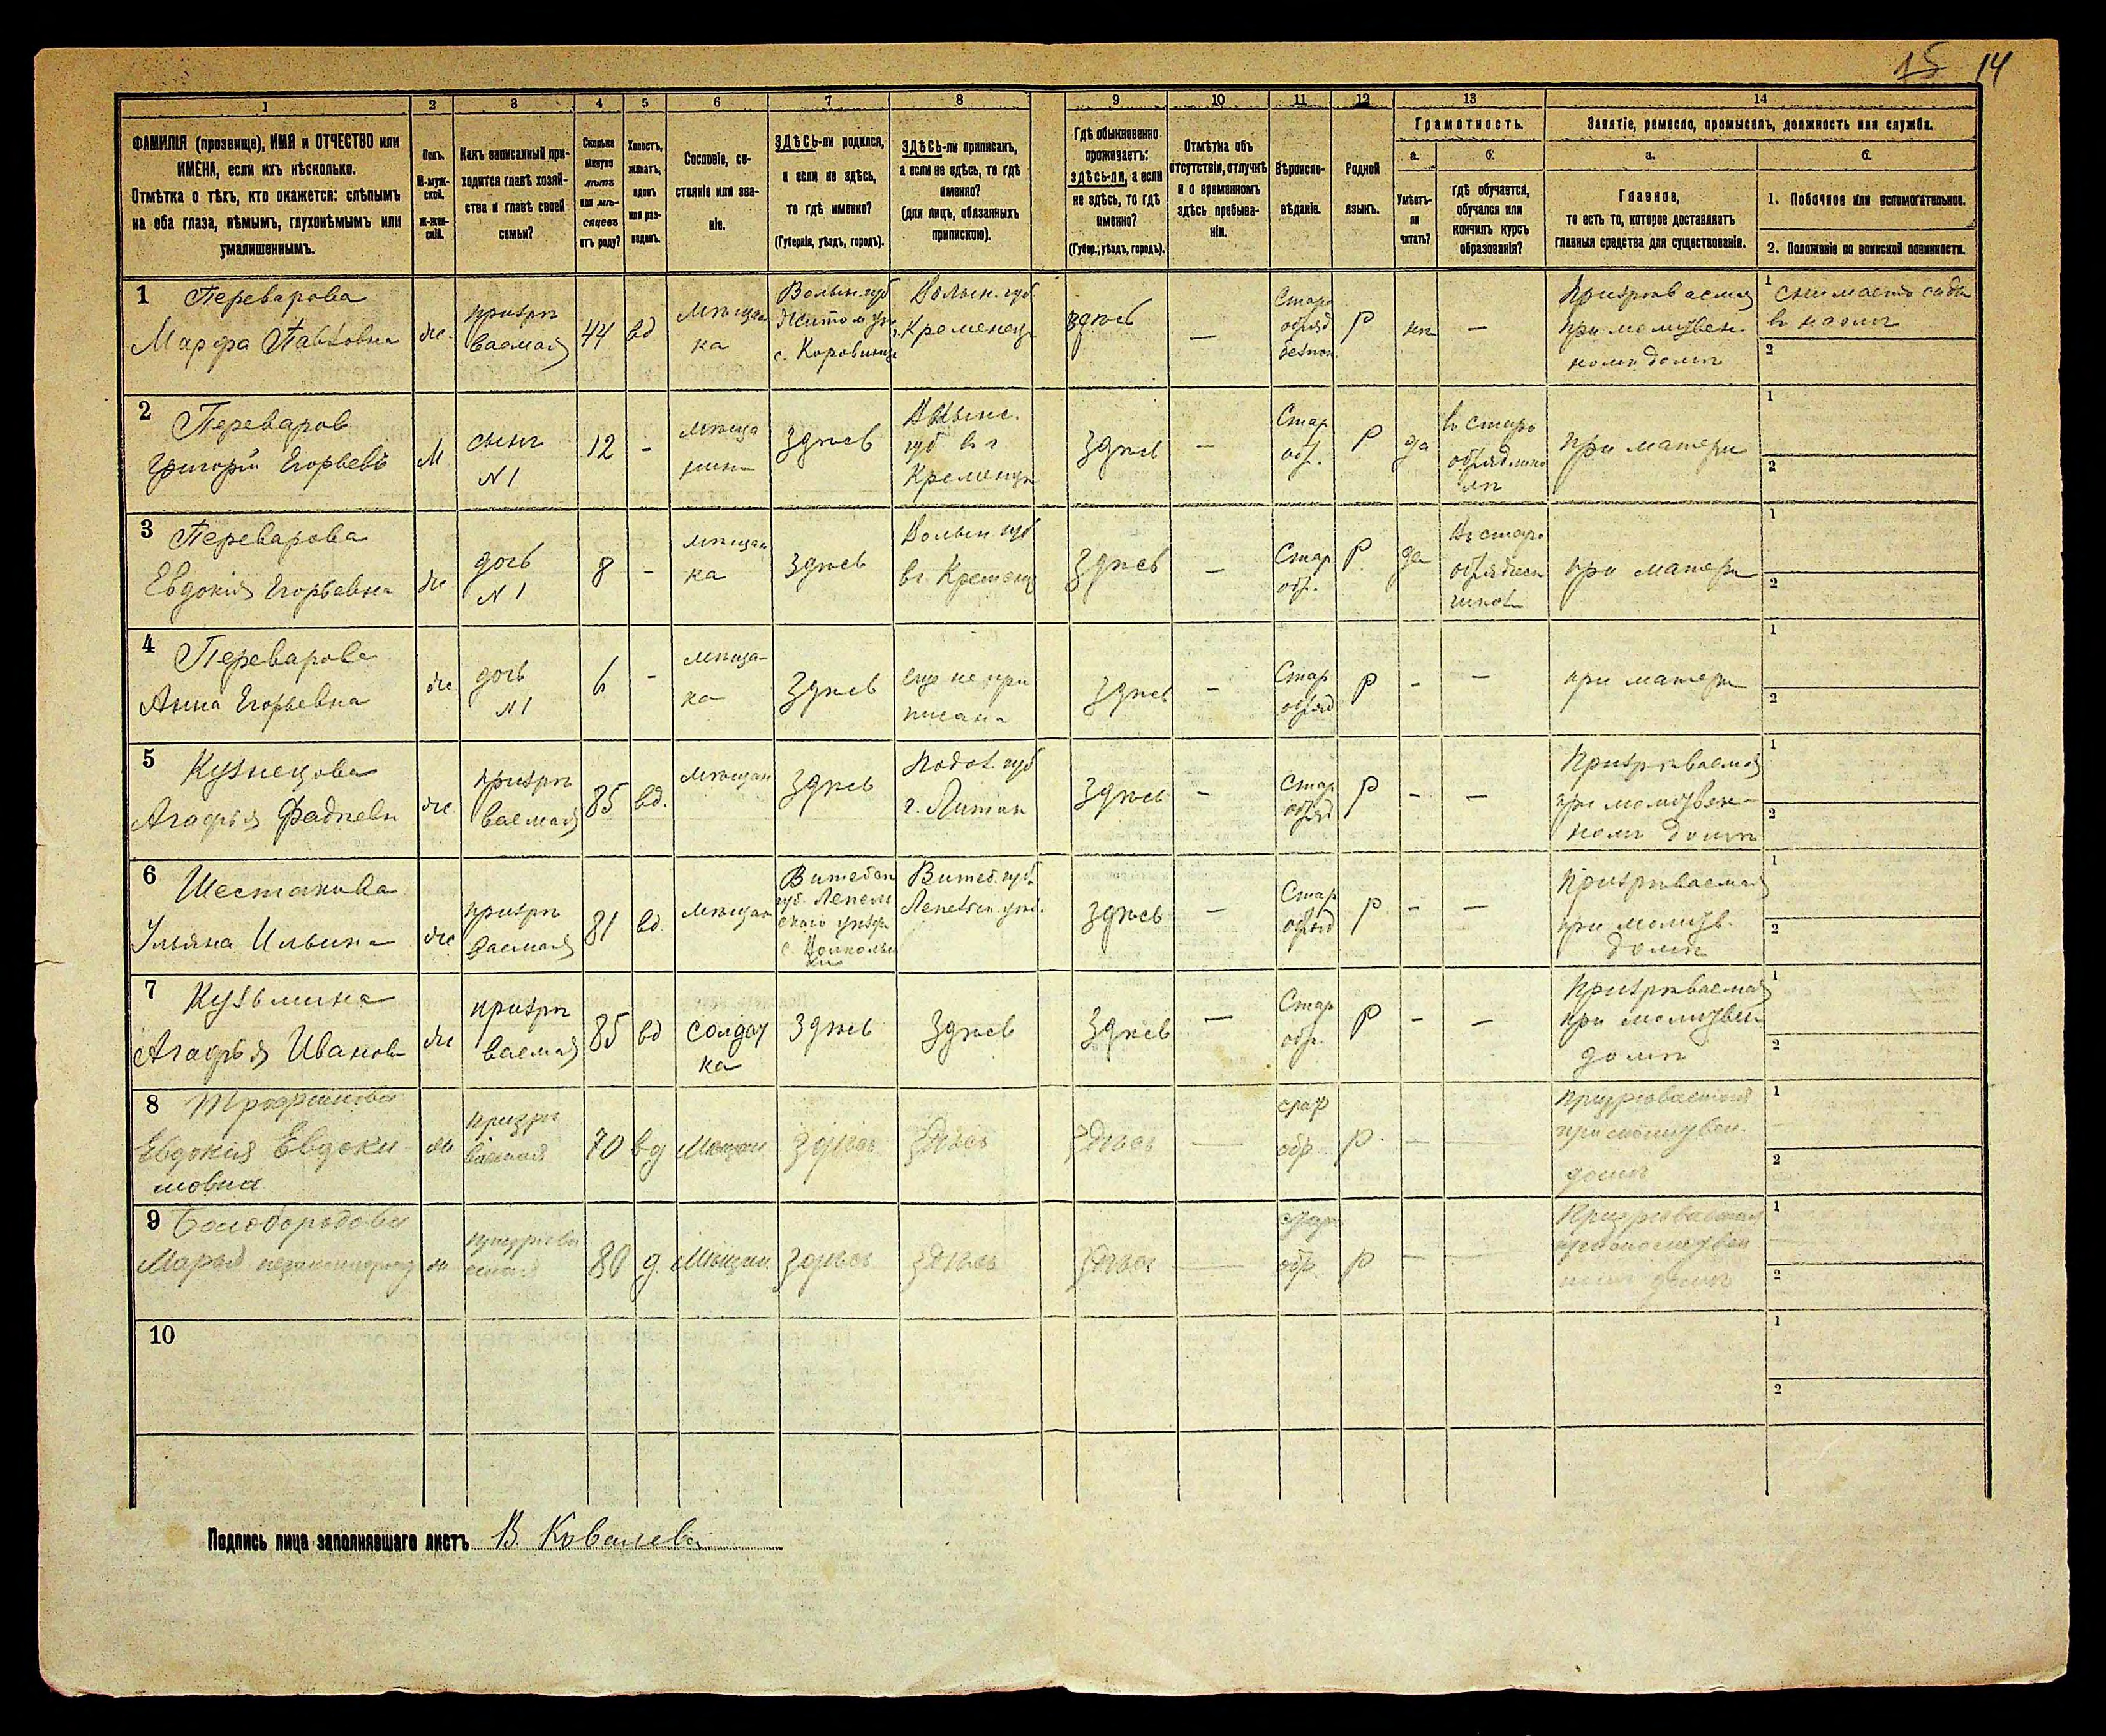 15 14
1 2 3 4 5 6 7 8 9 10 11 12 13 14
ФАМИЛІЯ (прозвище), ИМЯ и ОТЧЕСТВО или
ИМЕНА, если ихъ нѣсколько.
Отмѣтка о тѣхъ, кто окажется: слѣпымъ
на оба глаза, нѣмымъ, глухонѣмымъ или
умалишеннымъ.
Полъ.
М-муж-
ской.
Ж-жен-
скій.
Какъ записанный при-
ходится главѣ хозяй-
ства и главѣ своей
семьи?
Сколько
минуло
лѣтъ
или мѣ-
сяцевъ
отъ роду?
Холостъ,
женатъ,
вдовъ
или раз-
веденъ.
Сословіе, со-
стояніе или зва-
ніе.
ЗДѢСЬ-ли родился,
а если не здѣсь,
то гдѣ именно?
(Губернія, уѣздъ, городъ).
ЗДѢСЬ-ли приписанъ,
а если не здѣсь, то гдѣ
именно?
(для лицъ, обязанныхъ
припискою).
Гдѣ обыкновенно
проживаетъ:
здѣсь-ли, а если
не здѣсь, то гдѣ
именно?
(Губер., уѣздъ, городъ).
Отмѣтка объ
отсутствіи, отлучкѣ
и о временномъ
здѣсь пребыва-
ніи.
Вѣроиспо-
вѣданіе.
Родной
языкъ.
Грамотность.
а.
Умѣетъ-
ли
читать?
б.
гдѣ обучается,
обучался или
кончилъ курсъ
образованія?
Занятіе, ремесло, промыселъ, должность или служба.
а.
Главное,
то есть то, которое доставляетъ
главныя средства для существованія.
б.
1. Побочное или вспомогательное.
2. Положеніе по воинской повинности.
1 Переварова
Марфа Павловна
же.
призрѣ
ваемая
44
вд
мѣщан
ка
Волын. губ
Житом уѣ.
с. Коровинцы
Волын. губ.
г. Кременец
здѣсь
—
Старо
обряд
безпоп.
р
нѣ
—
Призрѣваемая
при молитвен.
номъ домѣ
1 снимаетъ сады
в наемъ
2
2 Переваров
Григорій Егорьевъ
М
сынъ
N 1
12
-
мѣща
нин
здѣсь
Волынс.
губ в г
Кременцѣ
здѣсь
—
Стар
обр.
Р
да
в старо
при матери
1
2
3 Переварова
Евдокія Егорьевна
же
дочь
N 1
8
-
мѣщан
ка
здѣсь
Волын губ
в г. Кременц
здѣсь
—
Стар
обр.
Р.
да
въ старо
при матери
1
2
4 Переварова
Анна Егорьевна
же
дочь
N 1
6
-
мѣща-
ка
здѣсь
еще не при
писана
здѣсь
—
Стар
обряд
р
-
-
при матери
1
2
5 Кузнецова
Агафья Фадѣевн
же
призрѣ
ваемая
85
вд.
мѣщан
здѣсь
Подол. губ
г. Литин
здѣсь
—
Стар
обряд
р
-
—
Призрѣваемая
при молитвен-
номъ домѣ
1
2
6 Шестакова
Ульяна Ильина
же
призрѣ
ваемая
81
вд
мѣщан
Витебск
губ. Лепель
скаго уѣзда
Витеб. губ.
Лепельск. уѣз.
здѣсь
—
Стар
обряд
р
-
—
Призрѣваемая
при молитв.
домѣ
1
2
7 Кузьмина
Агафья Иванов
же
призрѣ
ваемая
85
вд
солдат
ка
здѣсь
здѣсь
здѣсь
—
Стар
обр.
р
-
—
Призрѣваемая
при молитвен
домѣ
1
2
8 Трофимова
Евдокія Евдоки-
мовна
же
призрѣ
ваемая
70
вд
Мѣщан
здѣсь
здѣсь
здѣсь
—
стар
обр
р.
—
—
призрѣваемая
при молитвен.
домѣ
1
2
9 Бѣлобородова
Марья
ж
призрѣва
емая
80
д.
Мѣщан.
здѣсь
здѣсь
здѣсь
—
стар
обр.
р
—
—
Призрѣваемая
при молитвен
номъ домѣ
1
2
10
1
2
Подпись лица заполнявшаго листъ В. Ковалева